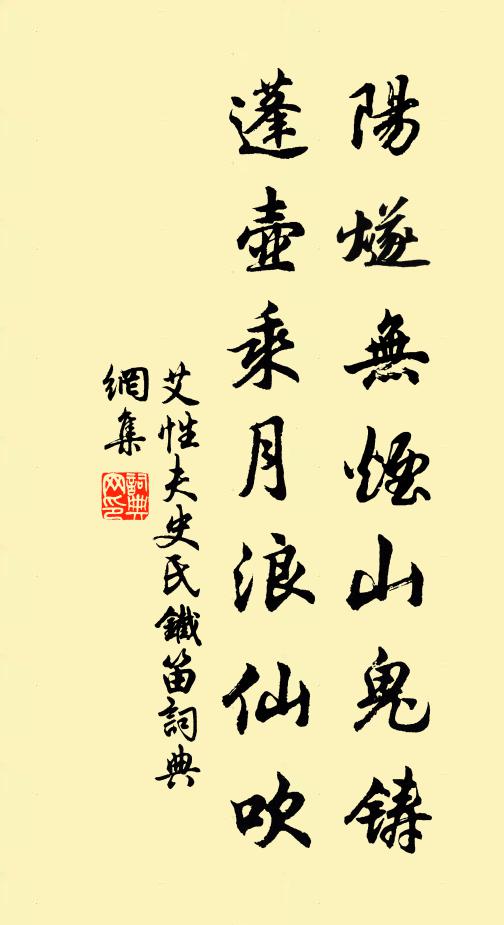 陽燧無煙山鬼鑄
蓬壺乘月浪仙吹
艾性夫史氏鐵笛詞典
網集
詞典
网印